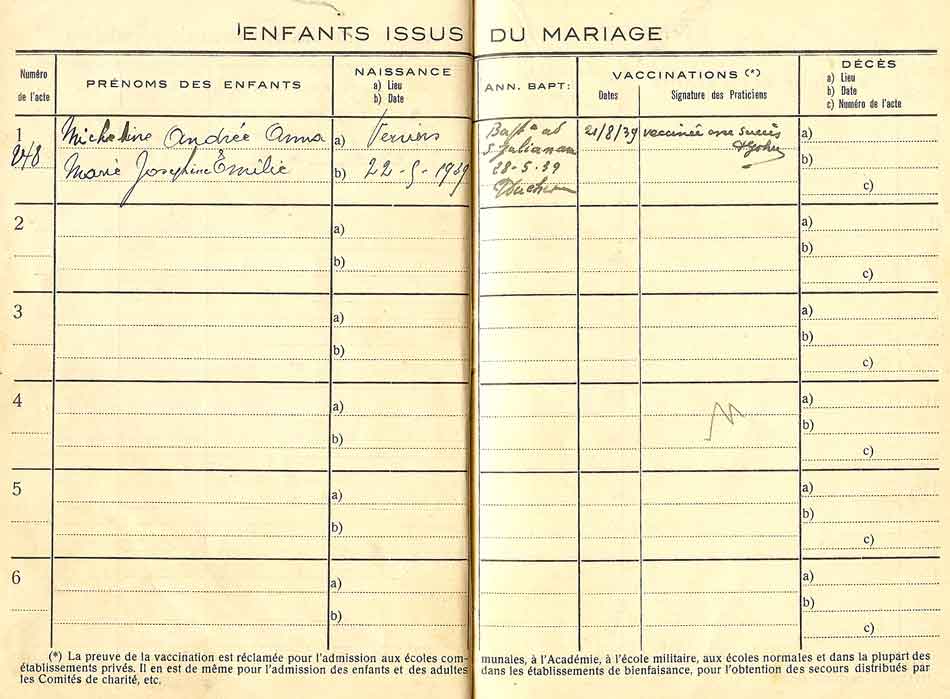 ENFANTS ISSUS DU MARIAGE
Numéro de l'acte
PRÉNOMS DES ENFANTS
NAISSANCE
a) Lieu
b) Date
ANN. BAPT:
VACCINATIONS (*)
Dates
Signature des Praticiens
DÉCÈS
a) Lieu
b) Date
c) Numéro de l'acte
1
248
Micheline Andrée Anna
Marie Josephine Émilie
a) Verviers
b) 22-5-1939
28-5-39
21/8/39
vaccinée avec succès
a)
b)
c)
2
a)
b)
a)
b)
c)
3
a)
b)
a)
b)
c)
4
a)
b)
a)
b)
c)
5
a)
b)
a)
b)
c)
6
a)
b)
a)
b)
c)
(*) La preuve de la vaccination est réclamée pour l'admission aux écoles com-
établissements privés. Il en est de même pour l'admission des enfants et des adultes
les Comités de charité, etc.
munales, à l'Académie, à l'école militaire, aux écoles normales et dans la plupart des
dans les établissements de bienfaisance, pour l'obtention des secours distribués par